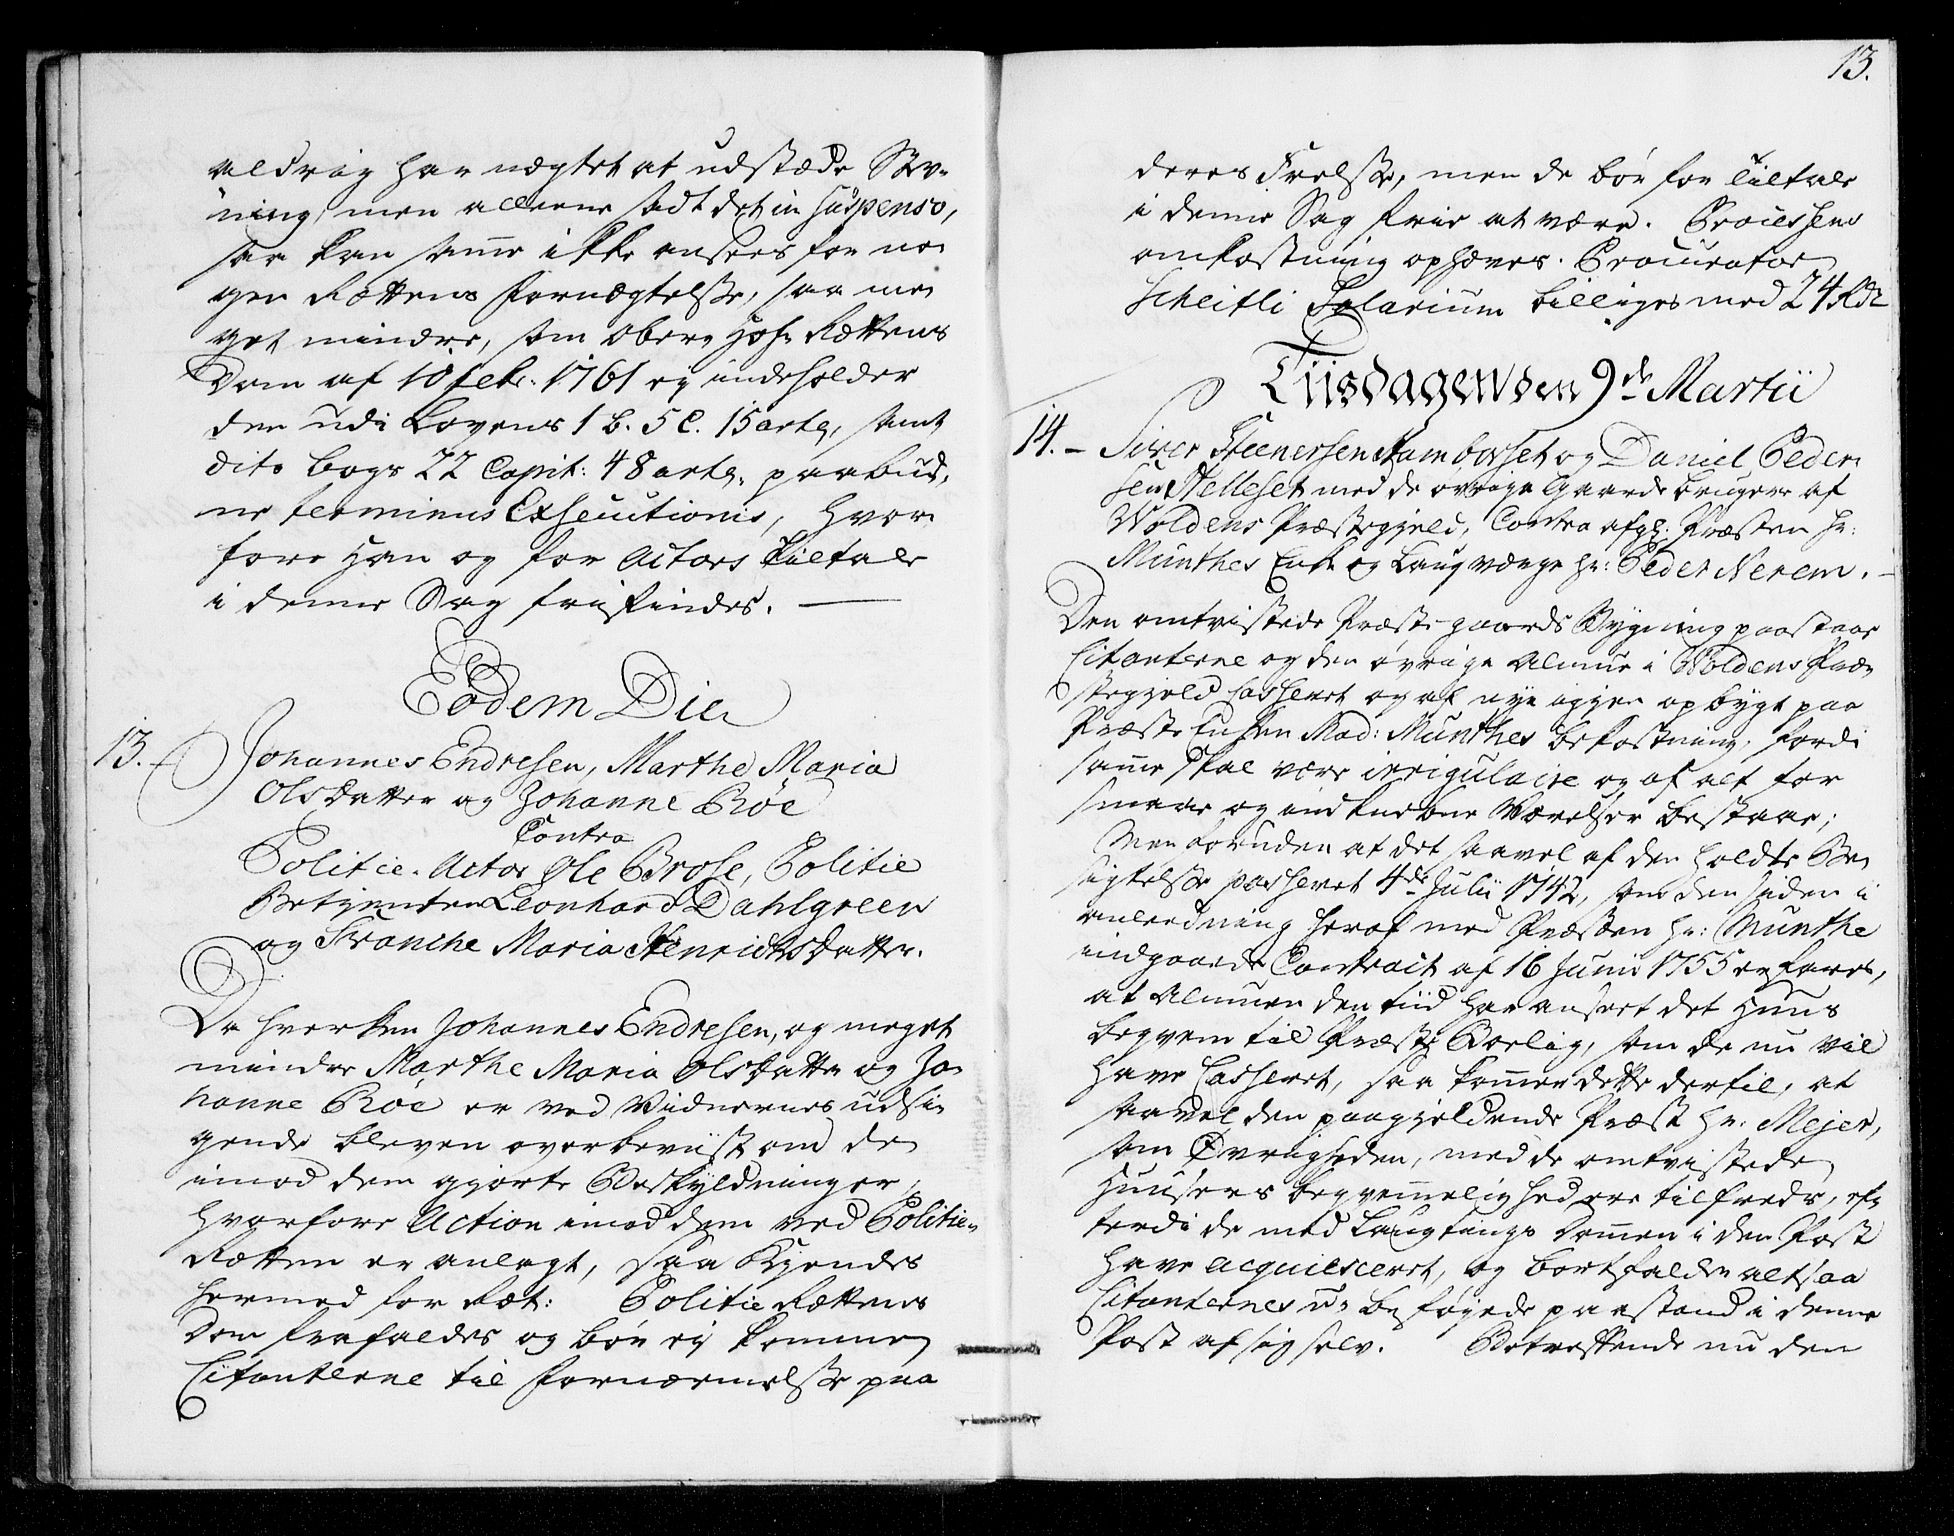 aldrig har nægtet at udstæde Skiö-
ning, men alleene sadt det in suspenso,
saa kan same ikke ansees for no-
gen Rettens fornægtelse, saa me-
get mindre, som Ober Hof-Rettens
Dom af 10 febr. 1761 ej indeholder
den udi Lovens 1 B. 5 C. 15 artl, samt
dito bogs 22 Capit: 48 artl. paabud-
ne terminus Exsecutionis, hvor-
fore han og for Actors tiltale
i denne Sag frifindes.
Eodem Die
13. Johannes Endresen, Marthe Maria
Olsdatter og Johanne Röe
Contra
Politie-Actor Ole Brose, Politie
Betienten Leonhard Dahlgreen
og Franche Maria Henrichsdatter.
Da hverken Johannes Endresen, og meget
mindre Marthe Maria Olsdatter og Jo-
hanne Röe er ved Vidnernes udsi-
gende bleven overbeviist om de
imod dem giorte Beskyldninger,
hvorfore Action imod dem ved Politie-
Retten er anlagt, saa Kiendes
hermed for Ret: Politie Rettens
Dom frafaldes og bör ej komme
Citanterne til fornærmelse paa
13.
deres Frelse, men de bör for Tiltale
i denne Sag frie at være. Processens
omkostning ophæves. Procurator
Scheitli Salarium billiges med 24 Rdr
Tiisdagen den 9de Martii
14. - Siver Steenersen Hamborset og Daniel Peder-
sen Helleset med de övrige Gaardebrugere af
Woldens Præstegjeld, Contra afgl. Præsten Hr:
Munthes Enke og Laugværge Hr: Peder Nerem.
Den omtvistede Præstegaards Bygning paastaar
Citanterne og den övrige Almue i Woldens Præ-
stegjeld Casseret og af nye igjen opbygt paa
Præste Enken Mad: Munthes bekostning, fordi
same skal være irrigulaire og af alt for
smaae og indknebne Værelser bestaar;
Men foruden at det saavel af den holdte Be-
sigtelse passeret 4de Julii 1742, som den siden i
anledning heraf med Præsten Hr: Munthe
indgaaede Contract af 16 Junii 1755 erfares,
at Almuen den tiid har anseet det Huus
beqvem til Præste Boelig, som de nu vil
have Casseret, saa komer dette dertil, at
saavel den paagieldende Præst Hr: Mejer,
som Övrigheden, med de omtvistede
Huusers beqvemelighed ere tilfreds, ef-
terdi de med Laugtings Domen i den Post
have acquiesceret, og bortfalder altsaa
Citanternes u-beföyede paastand i denne
Post af sig selv. Betreffende nu den